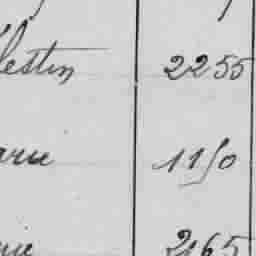 lestin 2255
arie 1150
2165